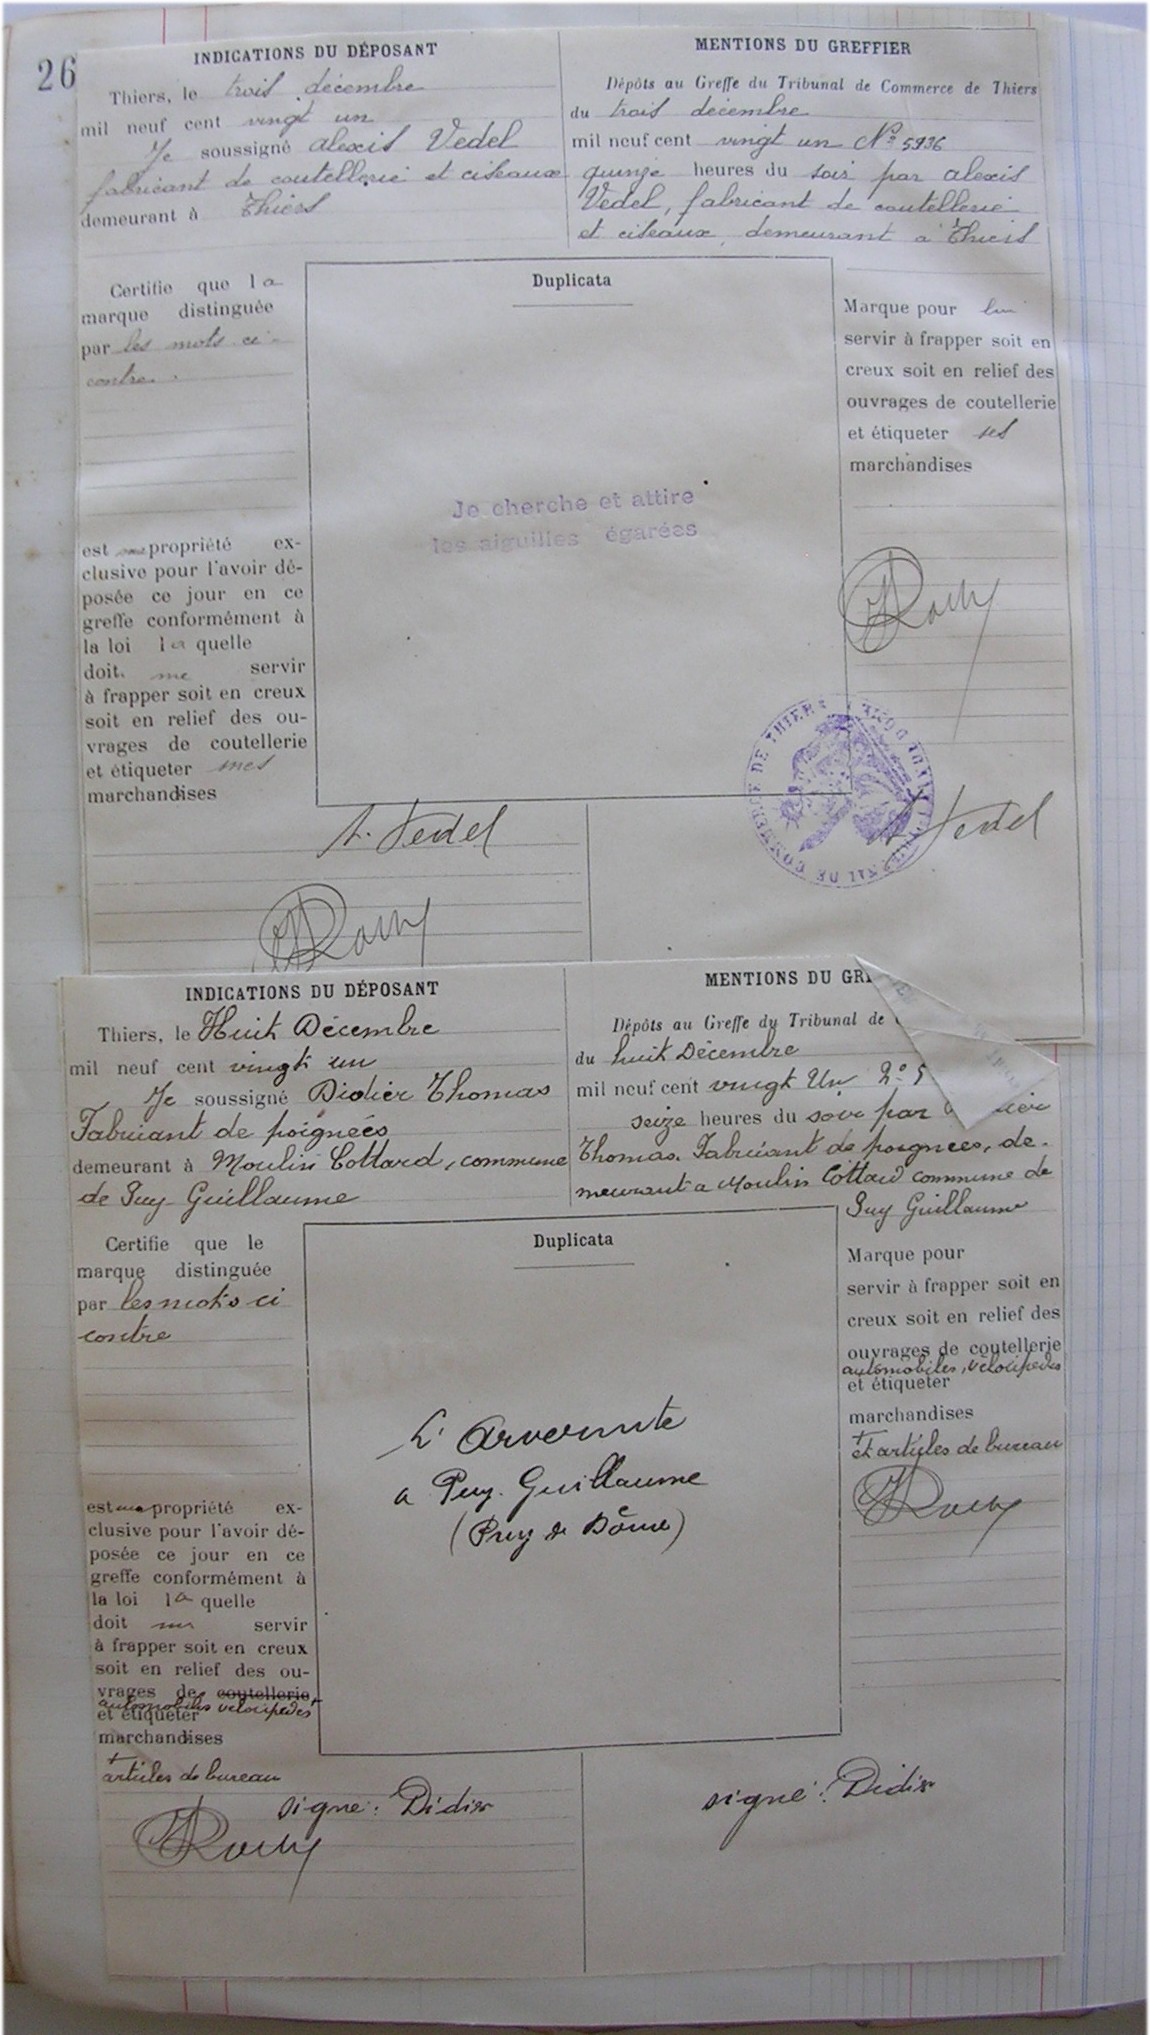 26
INDICATIONS DU DÉPOSANT
Thiers, le trois décembre
mil neuf cent vingt un
Je soussigné alexis Vedel
fabricant de coutellerie et ciseaux
demeurant à Thiers
MENTIONS DU GREFFIER
Dépôts au Greffe du Tribunal de Commerce de Thiers
du trois décembre
mil neuf cent vingt un No 5936
quinze heures du soir par alexis
Vedel, fabricant de coutellerie
et ciseaux, demeurant à Thiers
Certifie que la
marque distinguée
par les mots ci-
contre.
est ma propriété ex-
clusive pour l'avoir dé-
posée ce jour en ce
greffe conformément à
la loi laquelle
doit me servir
à frapper soit en creux
soit en relief des ou-
vrages de coutellerie
et étiqueter mes
marchandises
Duplicata
Je cherche et attire
les aiguilles égarées
Marque pour lui
servir à frapper soit en
creux soit en relief des
ouvrages de coutellerie
et étiqueter ses
marchandises
TRIBUNAL DE COMMERCE DE THIERS
A. Vedel
A. Vedel
INDICATIONS DU DÉPOSANT
Thiers, le Huit Décembre
mil neuf cent vingt un
Je soussigné Didier Thomas
Fabricant de poignées
demeurant à Moulin Cottard, commune
de Puy Guillaume
MENTIONS DU GRE
Dépôts au Greffe du Tribunal de
du huit Décembre
mil neuf cent vingt Un No 5
seize heures du soir par
Thomas. Fabricant de poignees, de-
meurant a Moulin Cottard commune de
Puy Guillaume
Certifie que le
marque distinguée
par les mots ci
contre
est ma propriété ex-
clusive pour l'avoir dé-
posée ce jour en ce
greffe conformément à
la loi laquelle
doit me servir
à frapper soit en creux
soit en relief des ou-
vrages de coutellerie
automobiles velocipedes
et étiqueter
marchandises
+
articles de bureau
Duplicata
L'Arvernite
a Puy-Guillaume
(Puy de Dôme)
Marque pour
servir à frapper soit en
creux soit en relief des
ouvrages de coutellerie
automobiles, vélocipedes
et étiqueter
marchandises
+
et articles de bureau
signé: Didier
signé: Didier